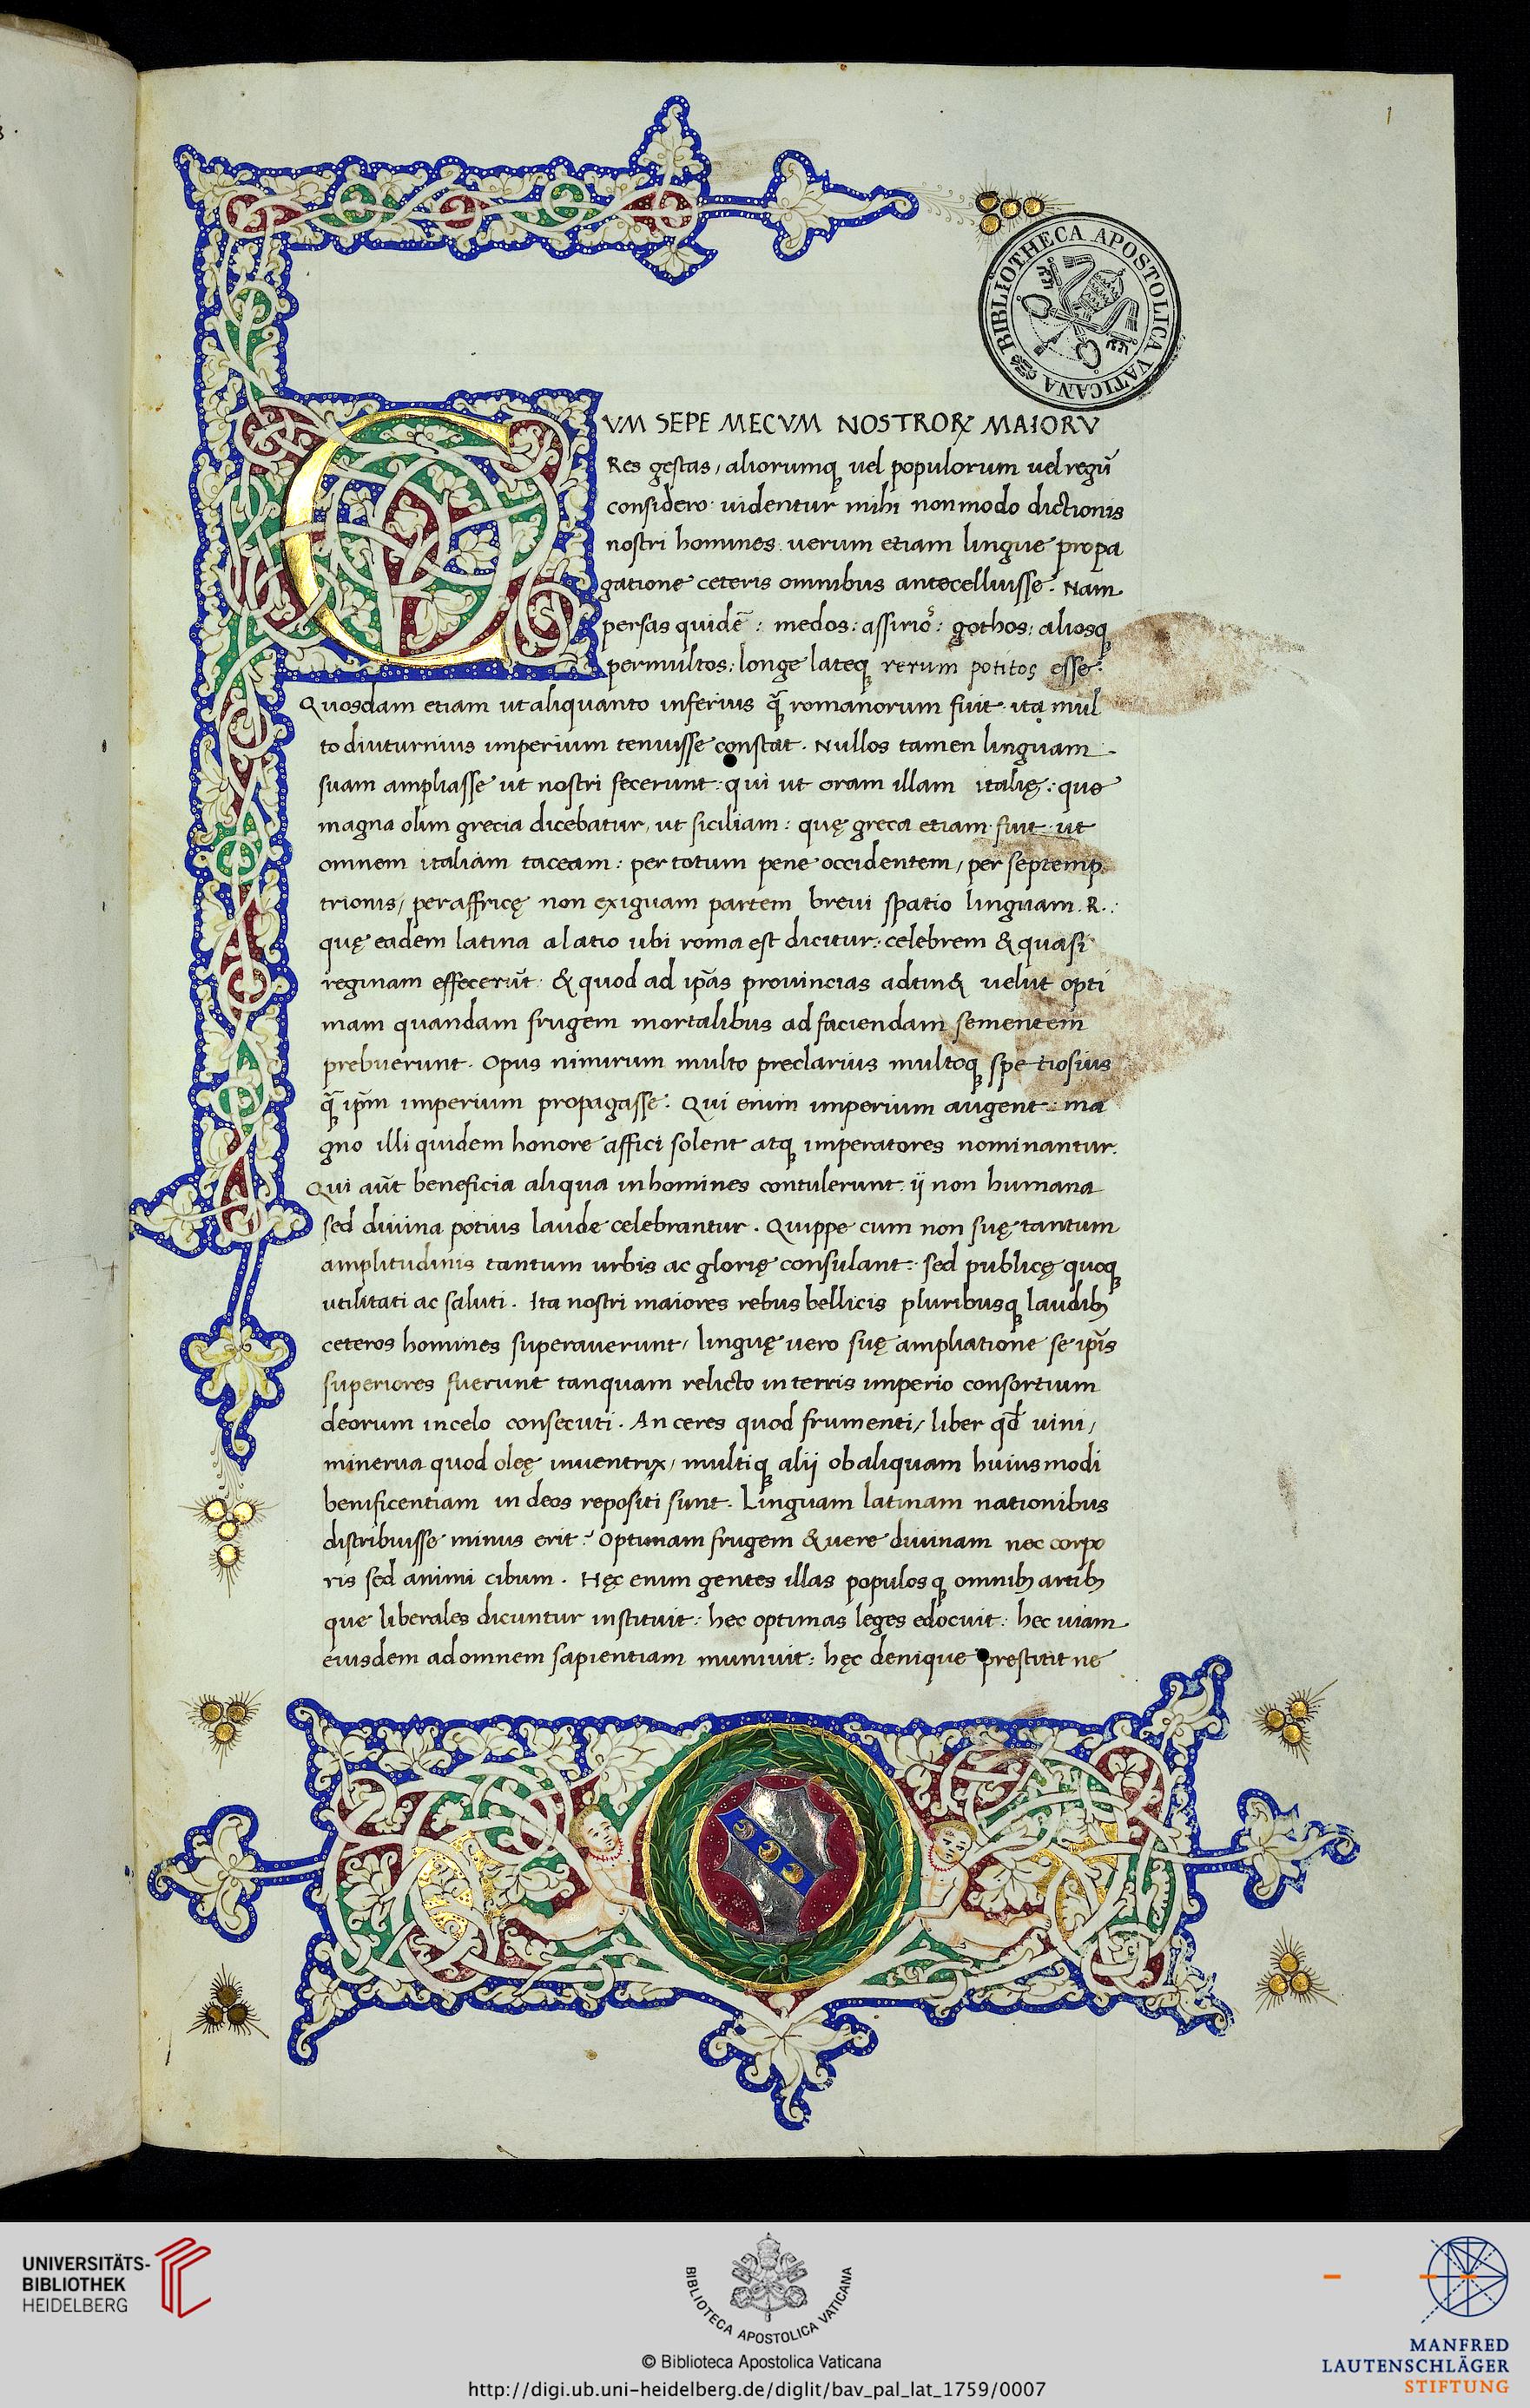 1
BIBLIOTHECA APOSTOLICA VATICANA
CVM SEPE MECVM NOSTRORꝜ MAIORV
Res gestas, aliorumqꝫ uel populorum uel regū
considero: uidentur mihi non modo dictionis
nostri homines: uerum etiam lingue propa
gatione ceteris omnibus antecelluisse. Nam
persas quidē: medos: assirioꝰ: gothos: aliosqꝫ
permultos: longe lateqꝫ rerum potitos esse:
Quosdam etiam ut aliquanto inferius q̄ romanorum fuit: ita mul
to diuturnius imperium tenuisse constat. Nullos tamen linguam
suam ampliasse ut nostri fecerunt: qui ut oram illam italię: que
magna olim grecia dicebatur, ut siciliam: quę greca etiam fuit: ut
omnem italiam taceam: per totum pene occidentem, per septemp
trionis, per affricę non exiguam partem breui spatio linguam .R.:
quę eadem latina a latio ubi roma est dicitur: celebrem & quasi
reginam effecerūt: & quod ad ip̄as prouincias adtin& uelut opti
mam quandam frugem mortalibus ad faciendam sementem
prebuerunt. Opus nimirum multo preclarius multoqꝫ spetiosius
q̄ ip̄m imperium propagasse. Qui enim imperium augent: ma
gno illi quidem honore affici solent atqꝫ imperatores nominantur.
Qui aūt beneficia aliqua in homines contulerunt: ij non humana
sed diuina potius laude celebrantur. Quippe cum non suę tantum
amplitudinis tantum urbis ac glorię consulant: sed publicę quoqꝫ
utilitati ac saluti. Ita nostri maiores rebus bellicis pluribusqꝫ laudibꝫ
ceteros homines superauerunt, linguę uero suę ampliatione se ip̄is
superiores fuerunt tanquam relicto in terris imperio consortium
deorum in celo consecuti. An ceres quod frumenti, liber qđ uini,
minerua quod oleę inuentrix, multiqꝫ alij ob aliquam huiusmodi
benificentiam in deos repositi sunt. Linguam latinam nationibus
distribuisse minus erit? Optimam frugem & uere diuinam nec corpo
ris sed animi cibum. Hęc enim gentes illas populosqꝫ omnibꝫ artibꝫ
que liberales dicuntur instituit: hec optimas leges edocuit: hec uiam
eiusdem ad omnem sapientiam muniuit: hęc denique prestitit ne
UNIVERSITÄTS-
BIBLIOTHEK
HEIDELBERG
BIBLIOTECA APOSTOLICA VATICANA
© Biblioteca Apostolica Vaticana
http://digi.ub.uni-heidelberg.de/diglit/bav_pal_lat_1759/0007
MANFRED
LAUTENSCHLÄGER
STIFTUNG